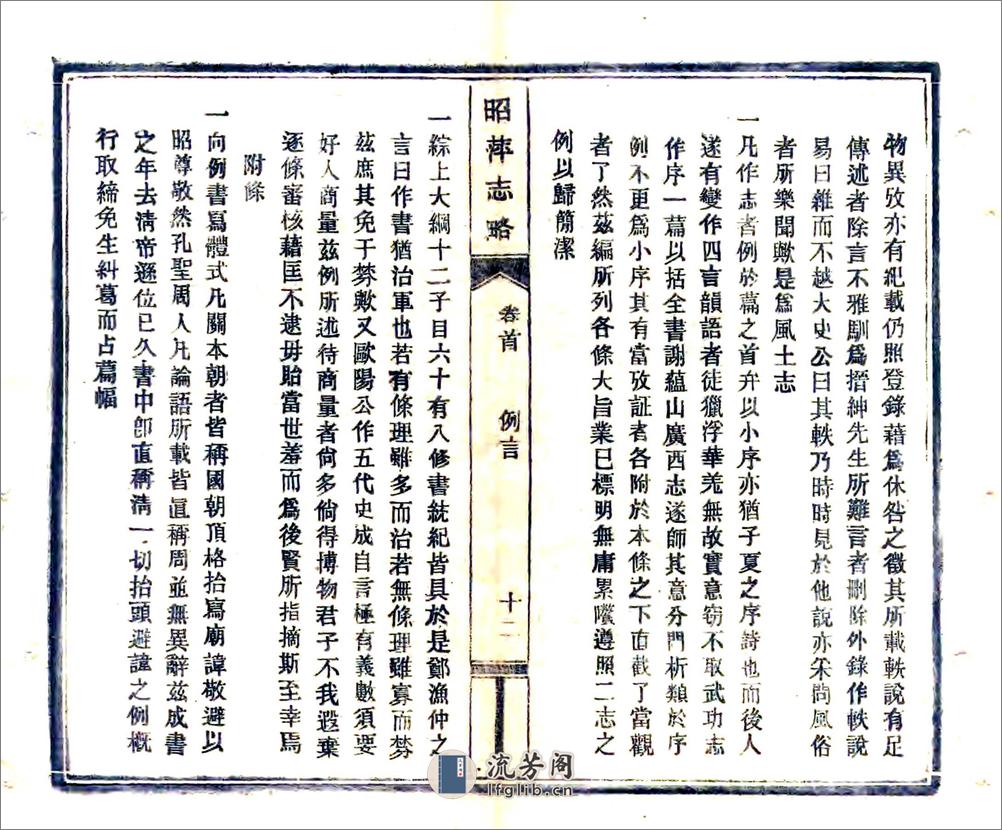 物異攷亦有紀載仍照登錄藉爲休咎之徵其所載軼說有足
傳述者除言不雅馴爲搢紳先生所難言者刪除外錄作軼說
易曰雜而不越大史公曰其軼乃時時見於他說亦采問風俗
者所樂聞歟是爲風土志
一凡作志者例於篇之首弁以小序亦猶子夏之序詩也而後人
遂有變作四言韻語者徒獵浮華羌無故實意竊不取武功志
作序一篇以括全書謝蘊山廣西志遂師其意分門析類於序
例不更爲小序其有當攷証者各附於本條之下直截了當觀
者了然茲編所列各條大旨業已標明無庸累贅遵照二志之
例以歸簡潔
昭萍志略
卷首
例言
十二
一綜上大綱十二子目六十有八修書統紀皆具於是鄭漁仲之
言曰作書猶治軍也若有條理雖多而治若無條理雖寡而棼
茲庶其免于棼歟又歐陽公作五代史成自言極有義數須要
好人商量茲例所述待商量者尙多倘得博物君子不我遐棄
逐條審核藉匡不逮毋貽當世羞而爲後賢所指摘斯至幸焉
附條
一向例書寫體式凡關本朝者皆稱國朝頂格抬寫廟諱敬避以
昭尊敬然孔聖周人凡論語所載皆直稱周並無異辭茲成書
之年去清帝遜位已久書中卽直稱清一切抬頭避諱之例概
行取締免生糾葛而占篇幅
流芳阁
lfglib.cn